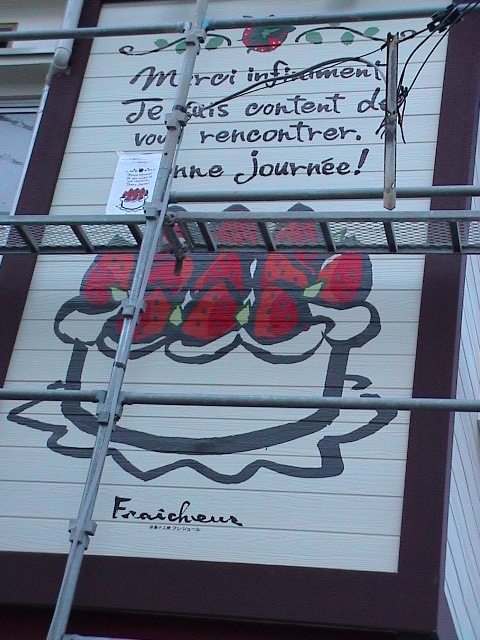 Merci infiniment
Je suis content de
vous rencontrer.
nne journée!
Fraîcheur